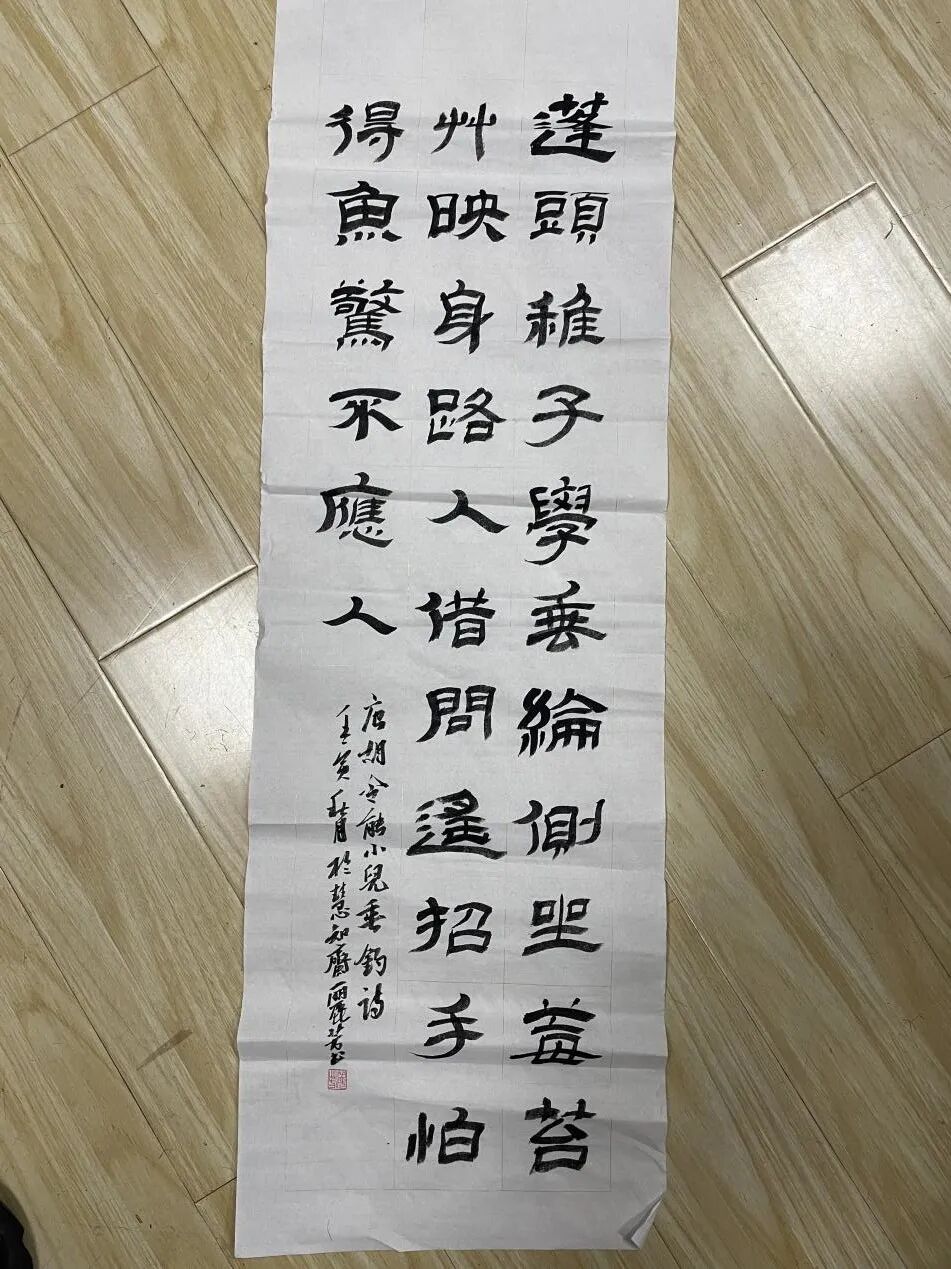 蓬頭稚子學垂綸側坐莓苔
艸映身路人借問遙招手怕
得魚驚不應人
唐胡令能小兒垂釣詩
壬寅秋月於慧知齋麗芳书